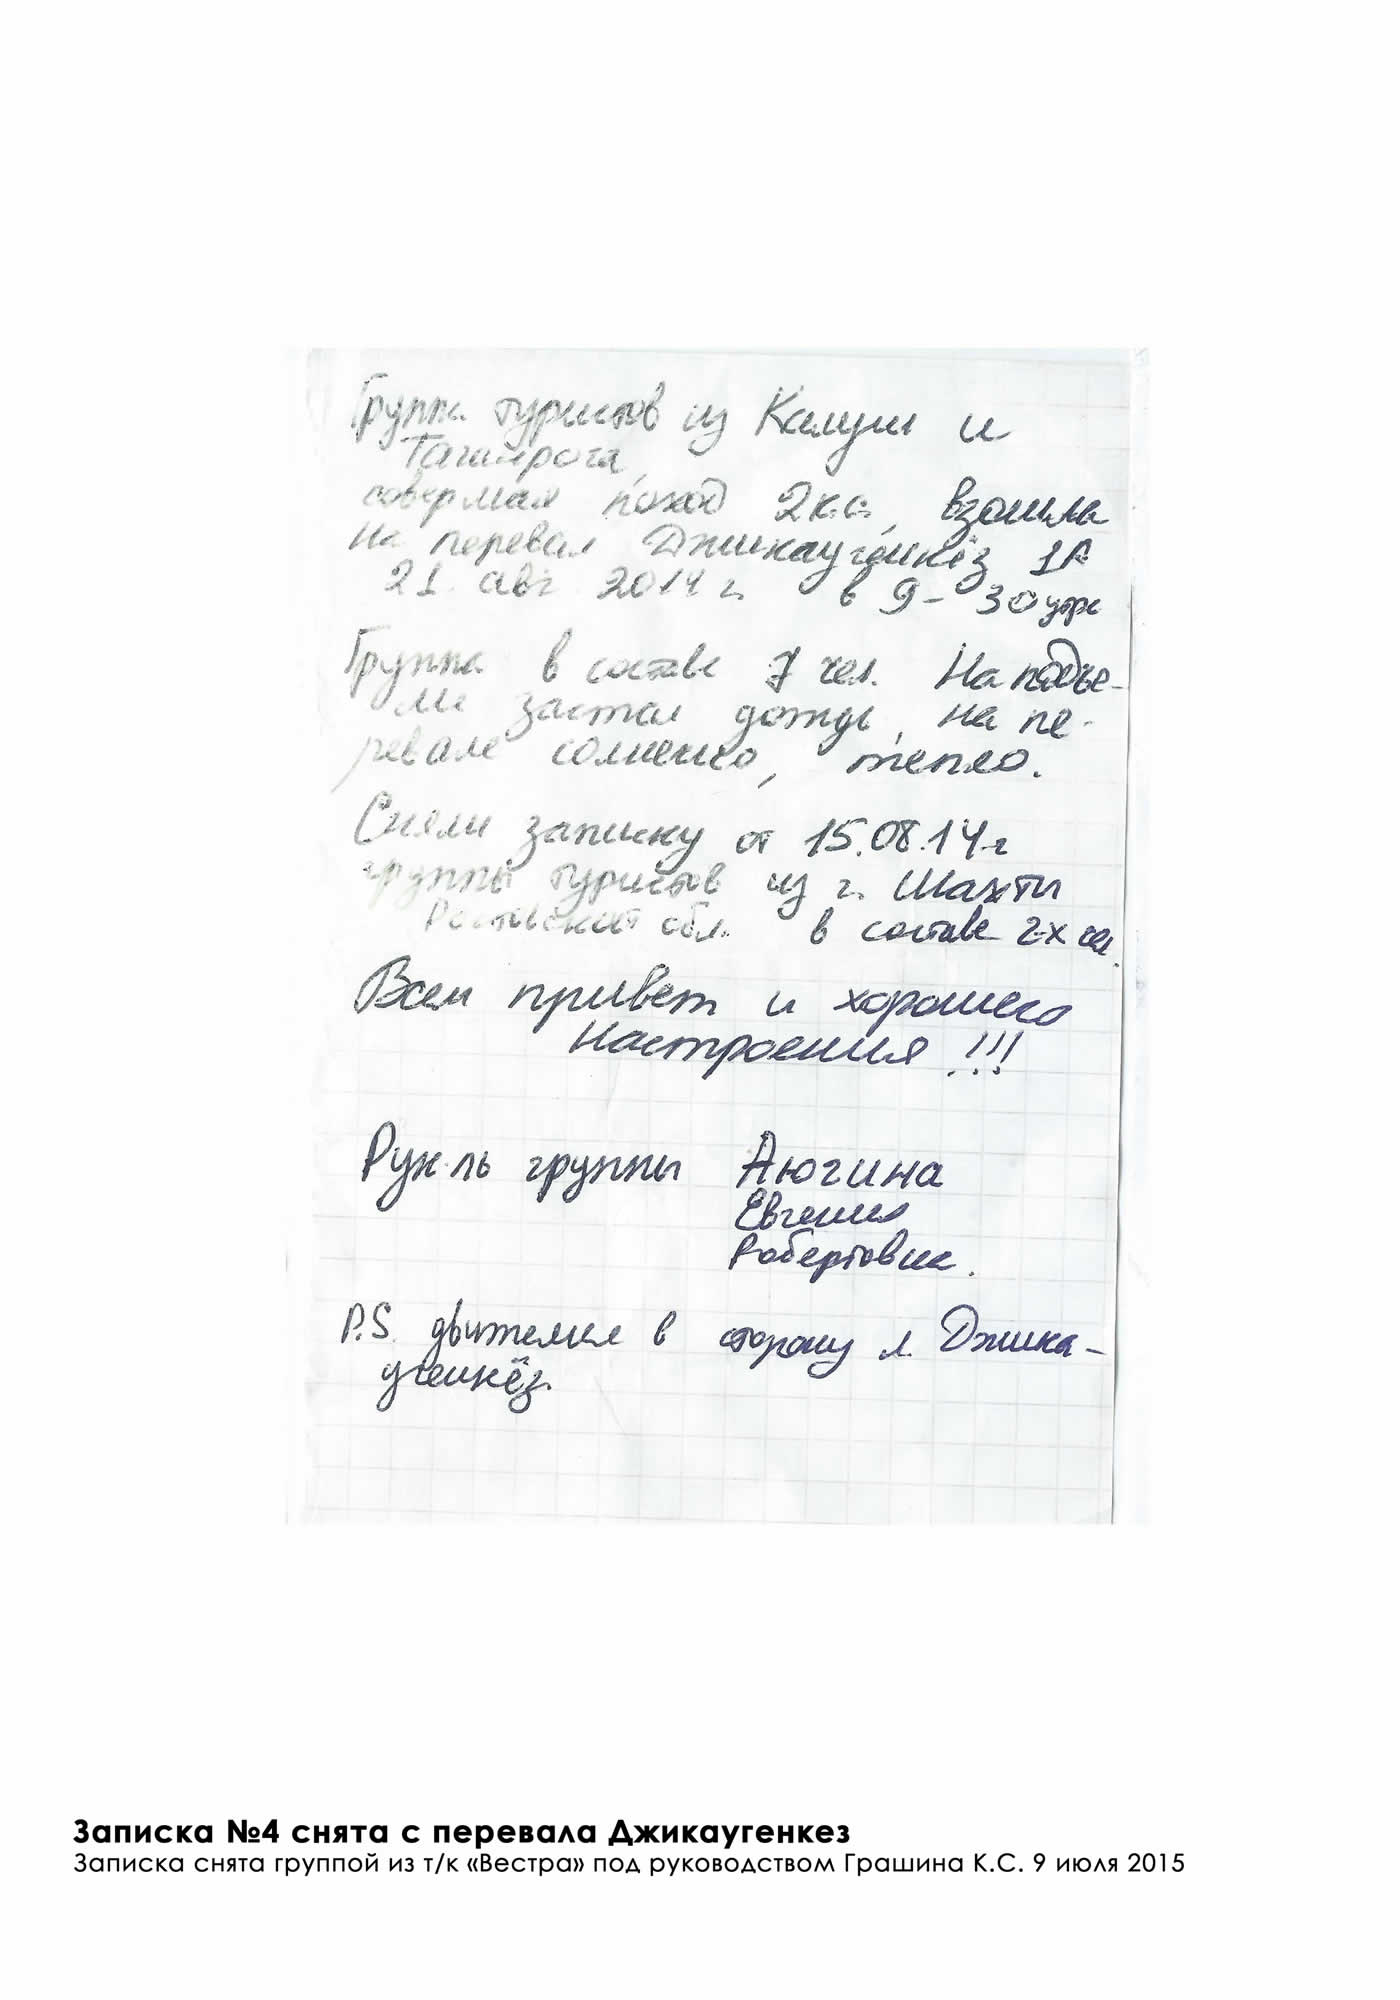 Группа туристов из Калуги и
Таганрога,
совершая поход 2 к.с., взошла
на перевал Джикаугенкёз 1А
21. авг. 2014 г. в 9 - 30 утра
Группа в составе 7 чел. На подъе-
ме застал дождь, на пе-
ревале солнечно, тепло.
Сняли записку от 15.08.14 г
группы туристов из г. Шахты
Ростовской обл. в составе 2-х чел.
Всем привет и хорошего
настроения!!!
Рук-ль группы Аюгина
Евгения
Робертовна.
P.S. двигаемся в сторону л. Джика-
угенкёз.
Записка №4 снята с перевала Джикаугенкез
Записка снята группой из т/к «Вестра» под руководством Грашина К.С. 9 июля 2015